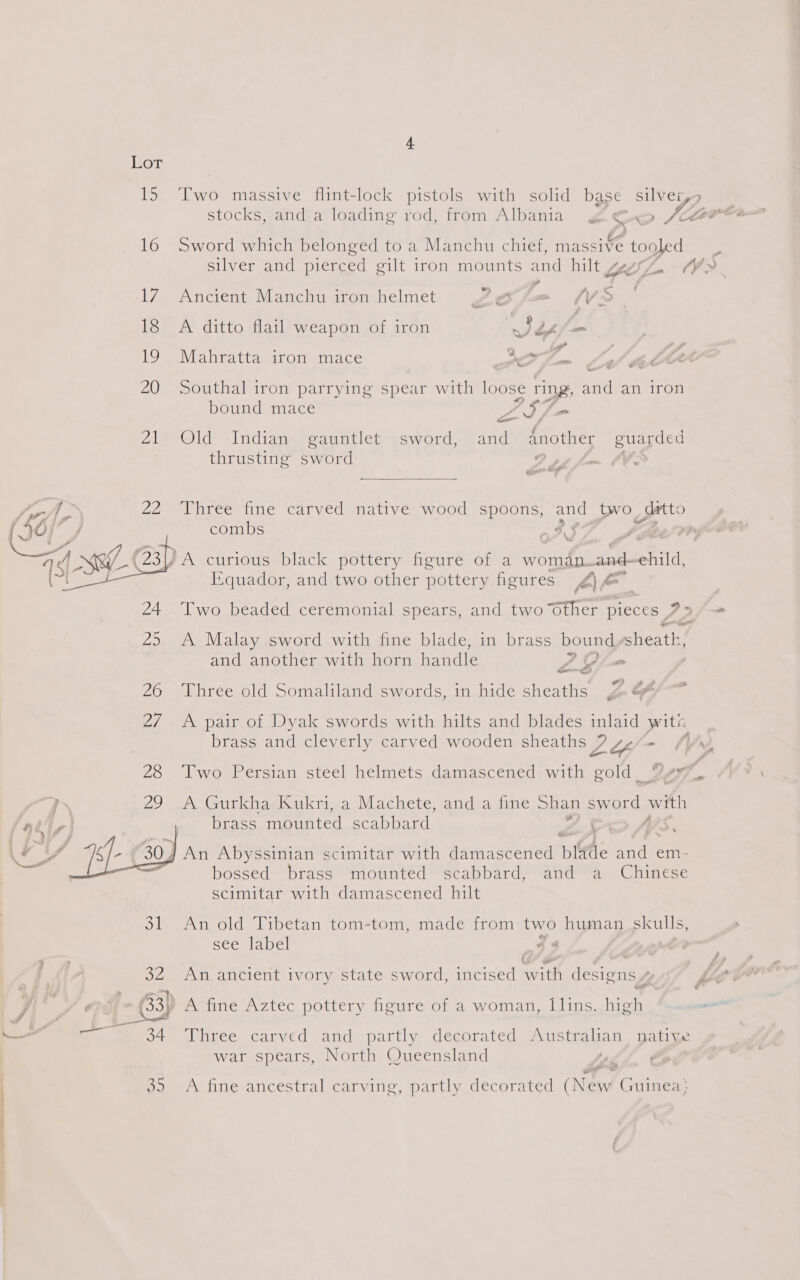 4
Lot
15 Two massive flint-lock pistols with solid base silver
stocks, and a loading rod, from Albania
16 Sword which belonged to a Manchu chief, massive tooled
silver and pierced gilt iron mounts and hilt
17 Ancient Manchu iron helmet
18 A ditto flail weapon of iron
19 Mahratta iron mace
20 Southal iron parrying spear with loose ring, and an iron
bound mace 25/-
21 Old Indian gauntlet sword, and another guarded
thrusting sword
22 Three fine carved native wood spoons, and two ditto
combs
23 A curious black pottery figure of a woman and child,
Equador, and two other pottery figures
24 Two beaded ceremonial spears, and two other pieces
25 A Malay sword with fine blade, in brass bound sheath,
and another with horn handle
26 Three old Somaliland swords, in hide sheaths
27 A pair of Dyak swords with hilts and blades inlaid with
brass and cleverly carved wooden sheaths
28 Two Persian steel helmets damascened with gold
29 A Gurkha Kukri, a Machete, and a fine Shan sword with
brass mounted scabbard
30 An Abyssinian scimitar with damascened blade and em-
bossed brass mounted scabbard, and a Chinese
scimitar with damascened hilt
31 An old Tibetan tom-tom, made from two human skulls,
see label
32 An ancient ivory state sword, incised with designs
33 A fine Aztec pottery figure of a woman, 11ins. high
34 Three carved and partly decorated Australian native
war spears, North Queensland
35 A fine ancestral carving, partly decorated (New Guinea)